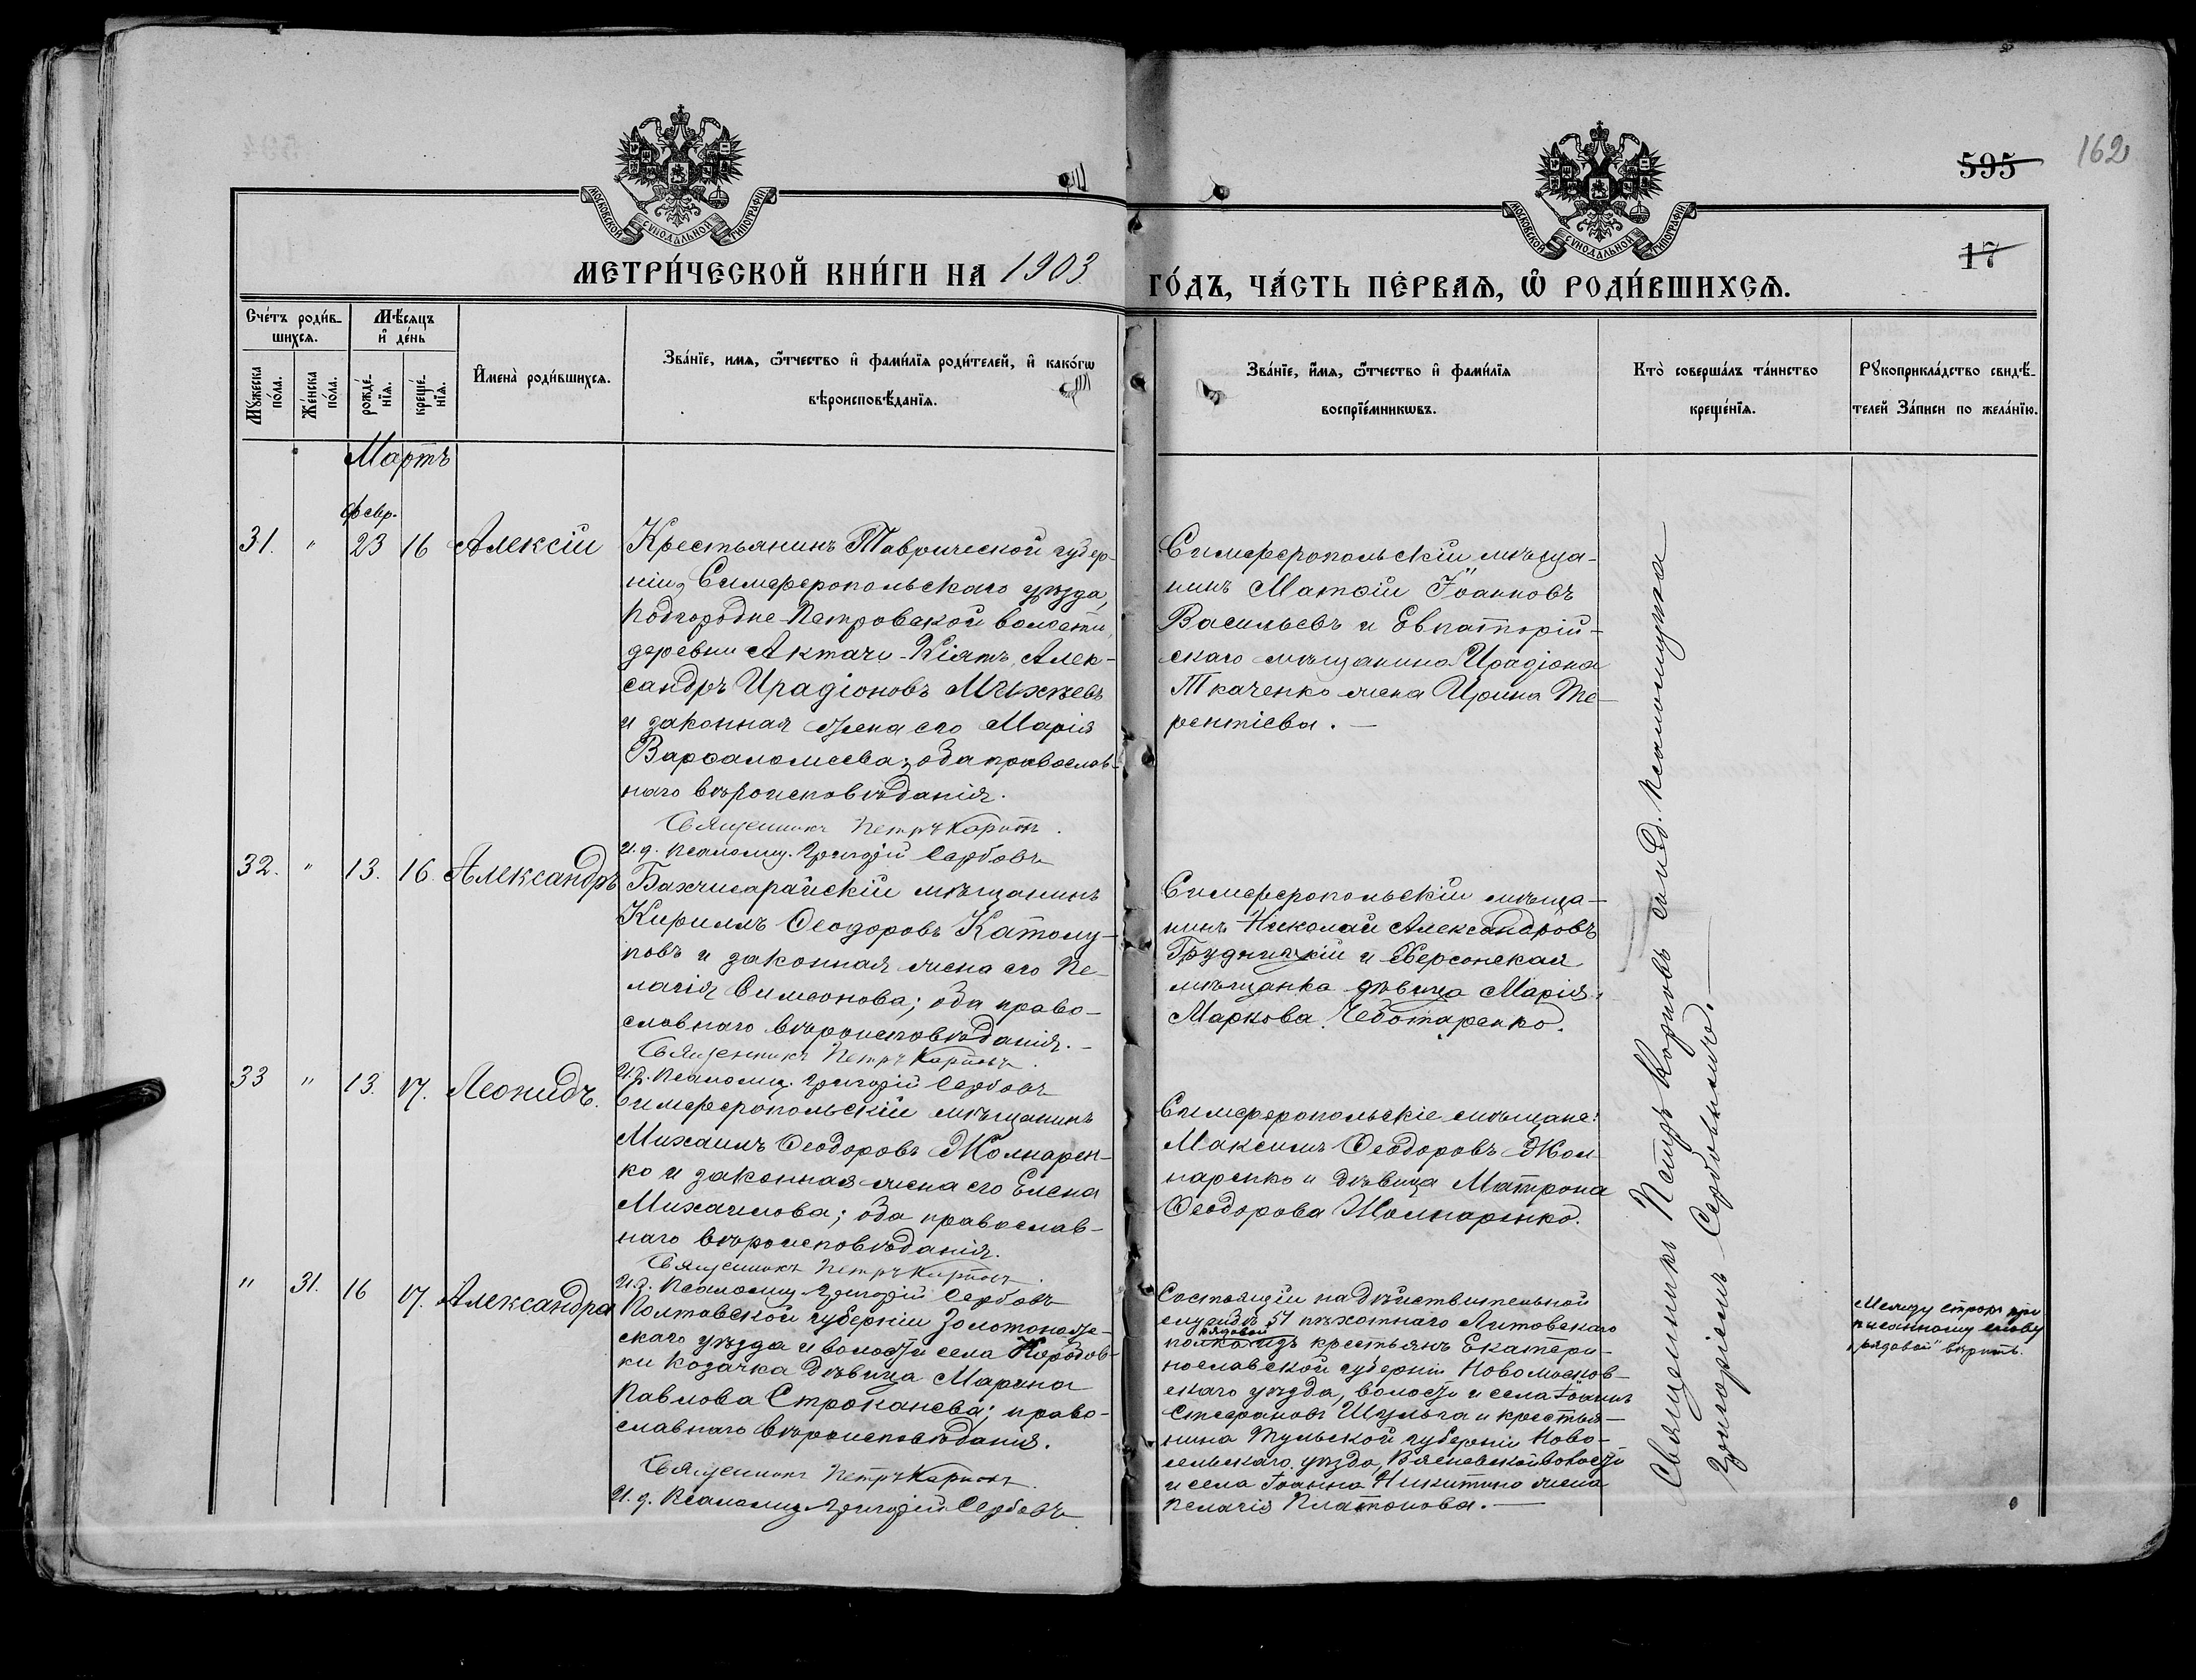 595
162
17
МОСКОВСКОЙ СѴНОДАЛЬНОЙ ТИПОГРАФІИ
МОСКОВСКОЙ СѴНОДАЛЬНОЙ ТИПОГРАФІИ
МЕТРИ́ЧЕСКОЙ КНИ́ГИ НА 1903
ГО́ДЪ, ЧА́СТЬ ПЕ́РВАѦ, Ѽ РОДИ́ВШИХСѦ.
Сче́тъ роди́в-
шихсѧ.
Мꙋ́жеска по́ла.
Же́нска по́ла.
Мѣ́сѧцъ
и҆ де́нь
рожде́-
нїѧ.
креще́-
нїѧ.
И҆мена̀ роди́вшихсѧ.
Зва́нїе, имѧ, ѻ҆́тчество и҆ фами́лїѧ роди́телей, и҆ како́гѡ
вѣроисповѣ́данїѧ.
Зва́нїе, и҆́мѧ, ѻ҆́тчество и҆ фами́лїѧ
воспрїе́мникѡвъ.
Кто̀ соверша́лъ та́инство
креще́нїѧ.
Рꙋкоприкла́дство свидѣ́-
телей За́писи по жела́нїю.
Мартъ
февр.
31. " 23 16 Алексій
Крестьянинъ Таврической губер-
ніи, Симферопольскаго уѣзда,
Подгородне-Петровской волости,
деревни Актачи-Кіятъ, Алек-
сандръ Ирадіоновъ
и законная жена его Марія
Варѳаломеева; оба православ-
наго вѣроисповѣданія.
Священникъ Петръ
И. д. псаломщ. Григорій Сербовъ
Симферопольскій мѣща-
нинъ Матѳій Іоанновъ
Васильевъ и Евпаторій-
скаго мѣщанина Ирадіона
Ткаченко жена Ирина Те-
рентіева. —
32. " 13. 16. Александръ
Бахчисарайскій мѣщанинъ
Кириллъ Ѳеодоровъ Католу-
повъ и законная жена его Пе-
лагія Симеонова; оба право-
славнаго вѣроисповѣданія. —
Священникъ Петръ
И. д. псаломщ. Григорій Сербовъ
Симферопольскій мѣща-
нинъ Николай Александровъ
Грудницкій и Херсонская
мѣщанка дѣвица Марія
Маркова Чеботаренко.
33 " 13. 17. Леонидъ.
Симферопольскій мѣщанинъ
Михаилъ Ѳеодоровъ Жолнарен-
ко и законная жена его Елена
Михаилова; оба православ-
наго вѣроисповѣданія.
Священникъ Петръ
И. д. псаломщ. Григорій Сербовъ
Симферопольскіе мѣщане:
Максимъ Ѳеодоровъ Жол-
наренко и дѣвица Матрона
Ѳеодорова Жолнаренко.
" 31. 16 17. Александра
Полтавской губерніи Золотонош-
скаго уѣзда и волости села Коробов-
ки козачка дѣвица Марина
Павлова Строканева; право-
славнаго вѣроисповѣданія.
Священникъ Петръ
И. д. псаломщ. Григорій Сербовъ
Состоящій на дѣйствительной
службѣ 51 пѣхотнаго Литовскаго
рядовой
полка изъ крестьянъ Екатери-
нославской губерніи Новомосков-
скаго уѣзда, волости и села Іоаннъ
Стефановъ Шульга и крестья-
нина Тульской губерніи Ново-
сельскаго уѣзда, волости
и села Іоанна Никитина жена
Пелагія Платонова. —
Священникъ Петръ съ и. д. псаломщика
Григоріемъ Сербовымъ. —
Между строкъ при-
писанному слову
„рядовой" вѣрить.